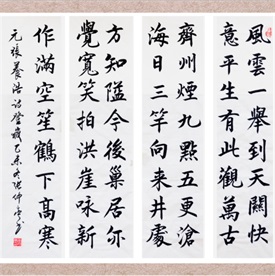 風雲一舉到天關快
意平生有此觀萬古
齊州煙九點五更滄
海日三竿向來井處
方知隘今後巢居亦
覺寬笑拍洪崖咏新
作滿空笙鶴下高寒
元張養浩詩登乙未冬